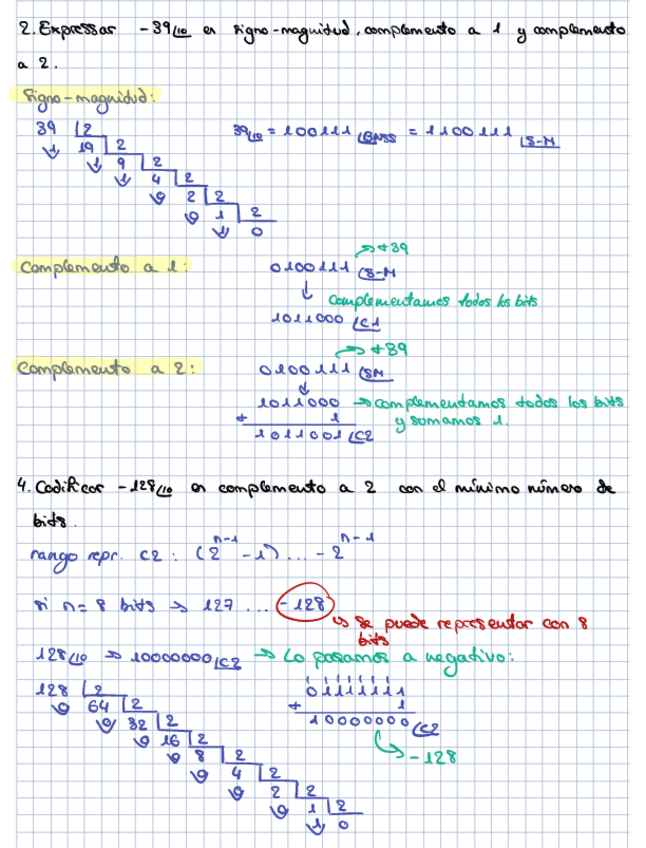 2. Expressar -39/10 en signo-magnitud, complemento a 1 y complemento
a 2.
Signo-magnitud:
39 2
1 19 2
1 9 2
1 4 2
0 2 2
0 1 2
1 0
39/10 = 100111 (BNSS = 1100111 (S-M
Complemento a 1:
→ +39
0100111 (S-M
↓ complementamos todos los bits
1011000 (C1
Complemento a 2:
→ +39
0100111 (SM
↓
1011000 → complementamos todos los bits
+ 1 y sumamos 1.
1011001 (C2
4. Codificar -128/10 en complemento a 2 con el mínimo número de
bits.
rango repr. C2 : (2^n-1 -1) ... -2^n-1
si n= 8 bits → 127 ... -128
↳ se puede representar con 8
bits
128/10 → 10000000 (C2 → Lo pasamos a negativo:
128 2
0 64 2
0 32 2
0 16 2
0 8 2
0 4 2
0 2 2
0 1 2
1 0
01111111
+ 1
10000000 (C2
↳ -128